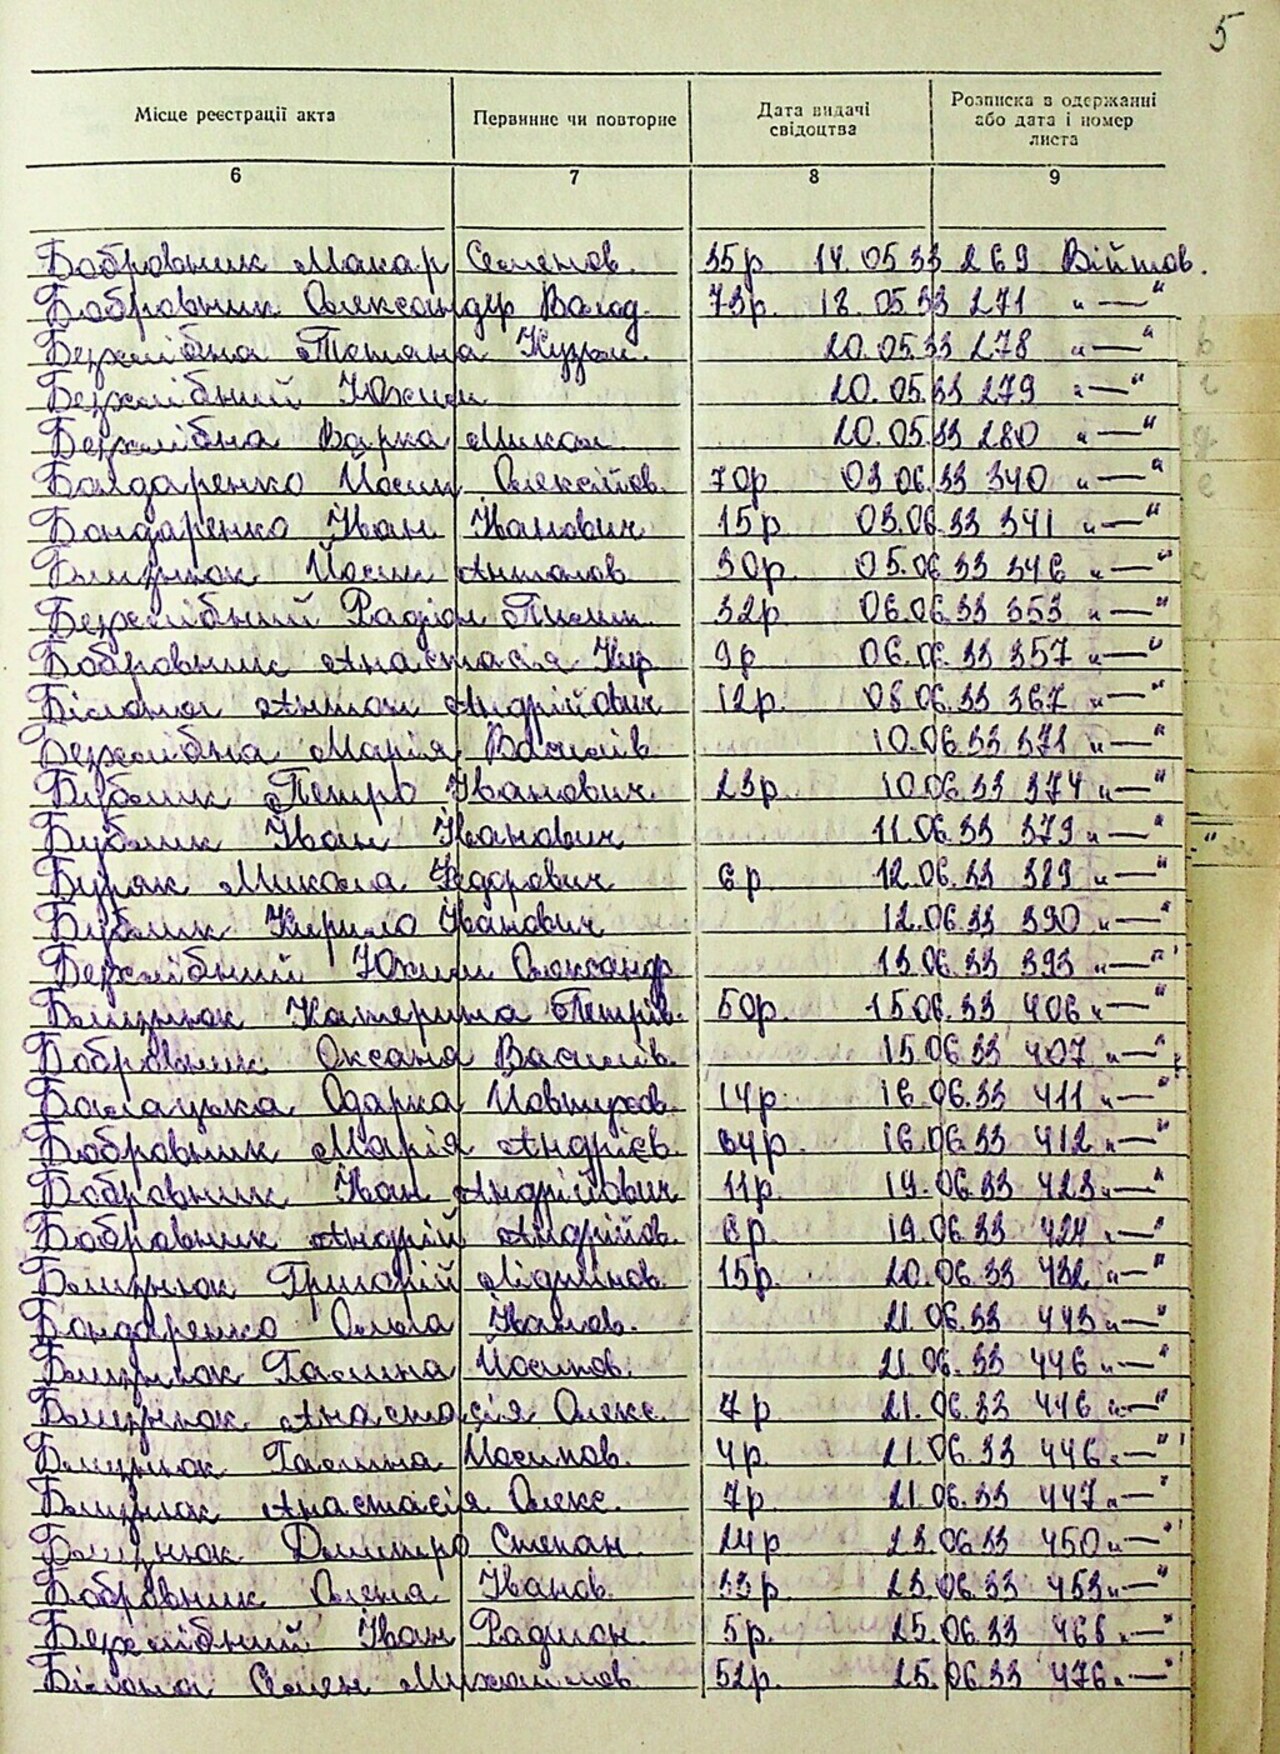 5
Місце реєстрації акта Первинне чи повторне Дата видачі свідоцтва Розписка в одержанні або дата і номер листа
6 7 8 9
Бобровник Макар Семенов. 35р 14.05 33 269 Війтов.
Бобровник Олександр Волод. 73р. 18.05.33 271 "—"
Безхлібна Тетяна Кузьм. 20.05.33 278 "—"
Безхлібний Юхим 20.05.33 279 "—"
Безхлібна Варка Микол. 20.05.33 280 "—"
Бондаренко Йосип Олексійов. 70р 03 06.33 340 "—"
Бондаренко Іван Іванович 15р. 03.06.33 341 "—"
Близнюк Йосип Антонов 30р. 05.06 33 346 "—"
Безхлібний Радіон Пилип. 32р. 06.06.33 353 "—"
Бобровник Анастасія Кир. 9р 06.06.33 357 "—"
Білоног Антон Андрійович 12р. 08 06.33 367 "—"
Безхлібна Марія Василів 10.06.33 371 "—"
Бублик Петро Іванович. 23р. 10.06.33 374 "—"
Бублик Іван Іванович 11.06.33 379 "—"
Буряк Микола Федорович 6р 12.06.33 389 "—"
Бублик Кирило Іванович 12.06.33 390 "—"
Безхлібний Юхим Олександр 13.06.33 393 "—"
Близнюк Катерина Петрів. 50р. 15 06.33 406 "—"
Бобровник Оксана Василів. 15.06.33 407 "—"
Балацька Одарка Йовтухов. 14р. 16.06.33 411 "—"
Бобровник Марія Андрієв. 64р. 16.06.33 412 "—"
Бобровник Іван Андрійович 11р. 19.06.33 423 "—"
Бобровник Андрій Андрійов. 6р 19.06.33 424 "—"
Близнюк Григорій 15р. 20.06.33 432 "—"
Бондаренко Ольга Іванов. 21.06.33 443 "—"
Близнюк Галина Йосипов. 21.06.33 446 "—"
Близнюк Анастасія Олекс. 7р 21.06.33 446 "—"
Близнюк Галина Йосипов. 4р. 21.06.33 446 "—"
Близнюк Анастасія Олекс. 7р 21.06.33 447 "—"
Близнюк Дмитро Степан. 24р 23.06.33 450 "—"
Бобровник Олена Іванов. 33р. 23.06.33 453 "—"
Безхлібний Іван Радион. 5р. 25.06.33 468 "—"
Білоног Семен Михайлов. 52р. 25.06.33 476 "—"